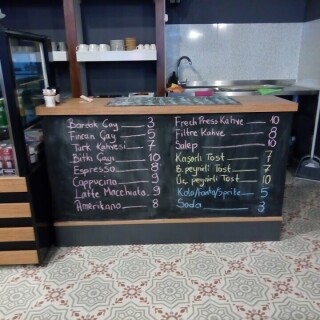 Bardak Çay 3
Fincan Çay 5
Türk Kahvesi 7
Bitki Çayı 10
Espresso 8
Cappucino 9
Latte Macchiato 9
Amerikano 8
French Press Kahve 10
Filtre Kahve 8
Salep 10
Kaşarlı Tost 7
B. peynirli Tost 7
Üç peynirli Tost 10
Kola/Fanta/Sprite 5
Soda 3